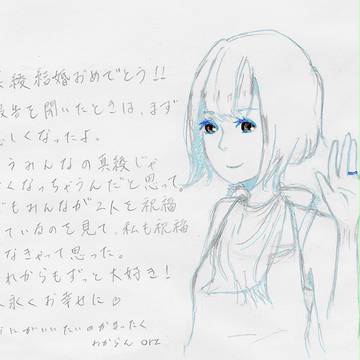 真綾結婚おめでとう!!
報告を聞いたときは、まず
しくなったよ。
うみんなの真綾じゃ
くなっちゃうんだと思って。
もみんなが2人を祝福
ているのを見て、私も祝福
なきゃって思った。
れからもずっと大好き!
永くお幸せに♡
にがいいたいのかまったく
わからん orz